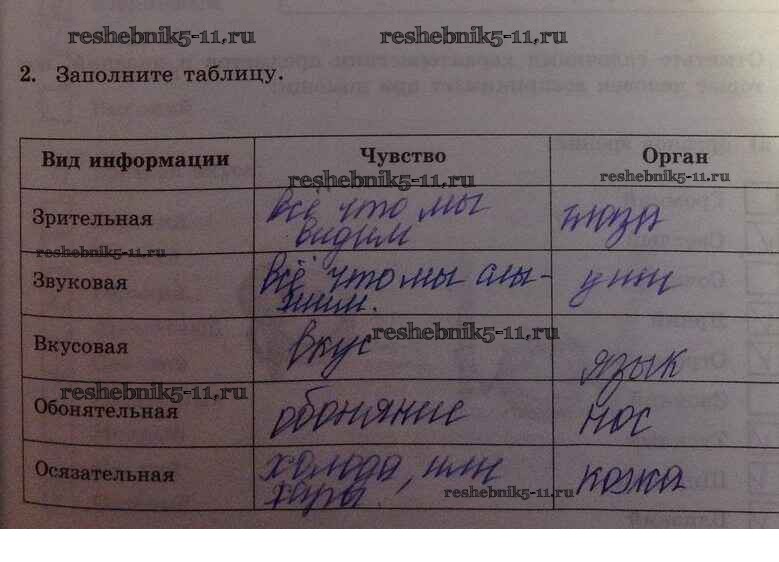 reshebnik5-11.ru reshebnik5-11.ru
2. Заполните таблицу.
Вид информации Чувство Орган
reshebnik5-11.ru reshebnik5-11.ru
Зрительная всё что мы видим глаза
reshebnik5-11.ru
Звуковая всё что мы слы-шим. уши
reshebnik5-11.ru
Вкусовая вкус язык
reshebnik5-11.ru
Обонятельная обоняние нос
Осязательная холода, или жары. кожа
reshebnik5-11.ru